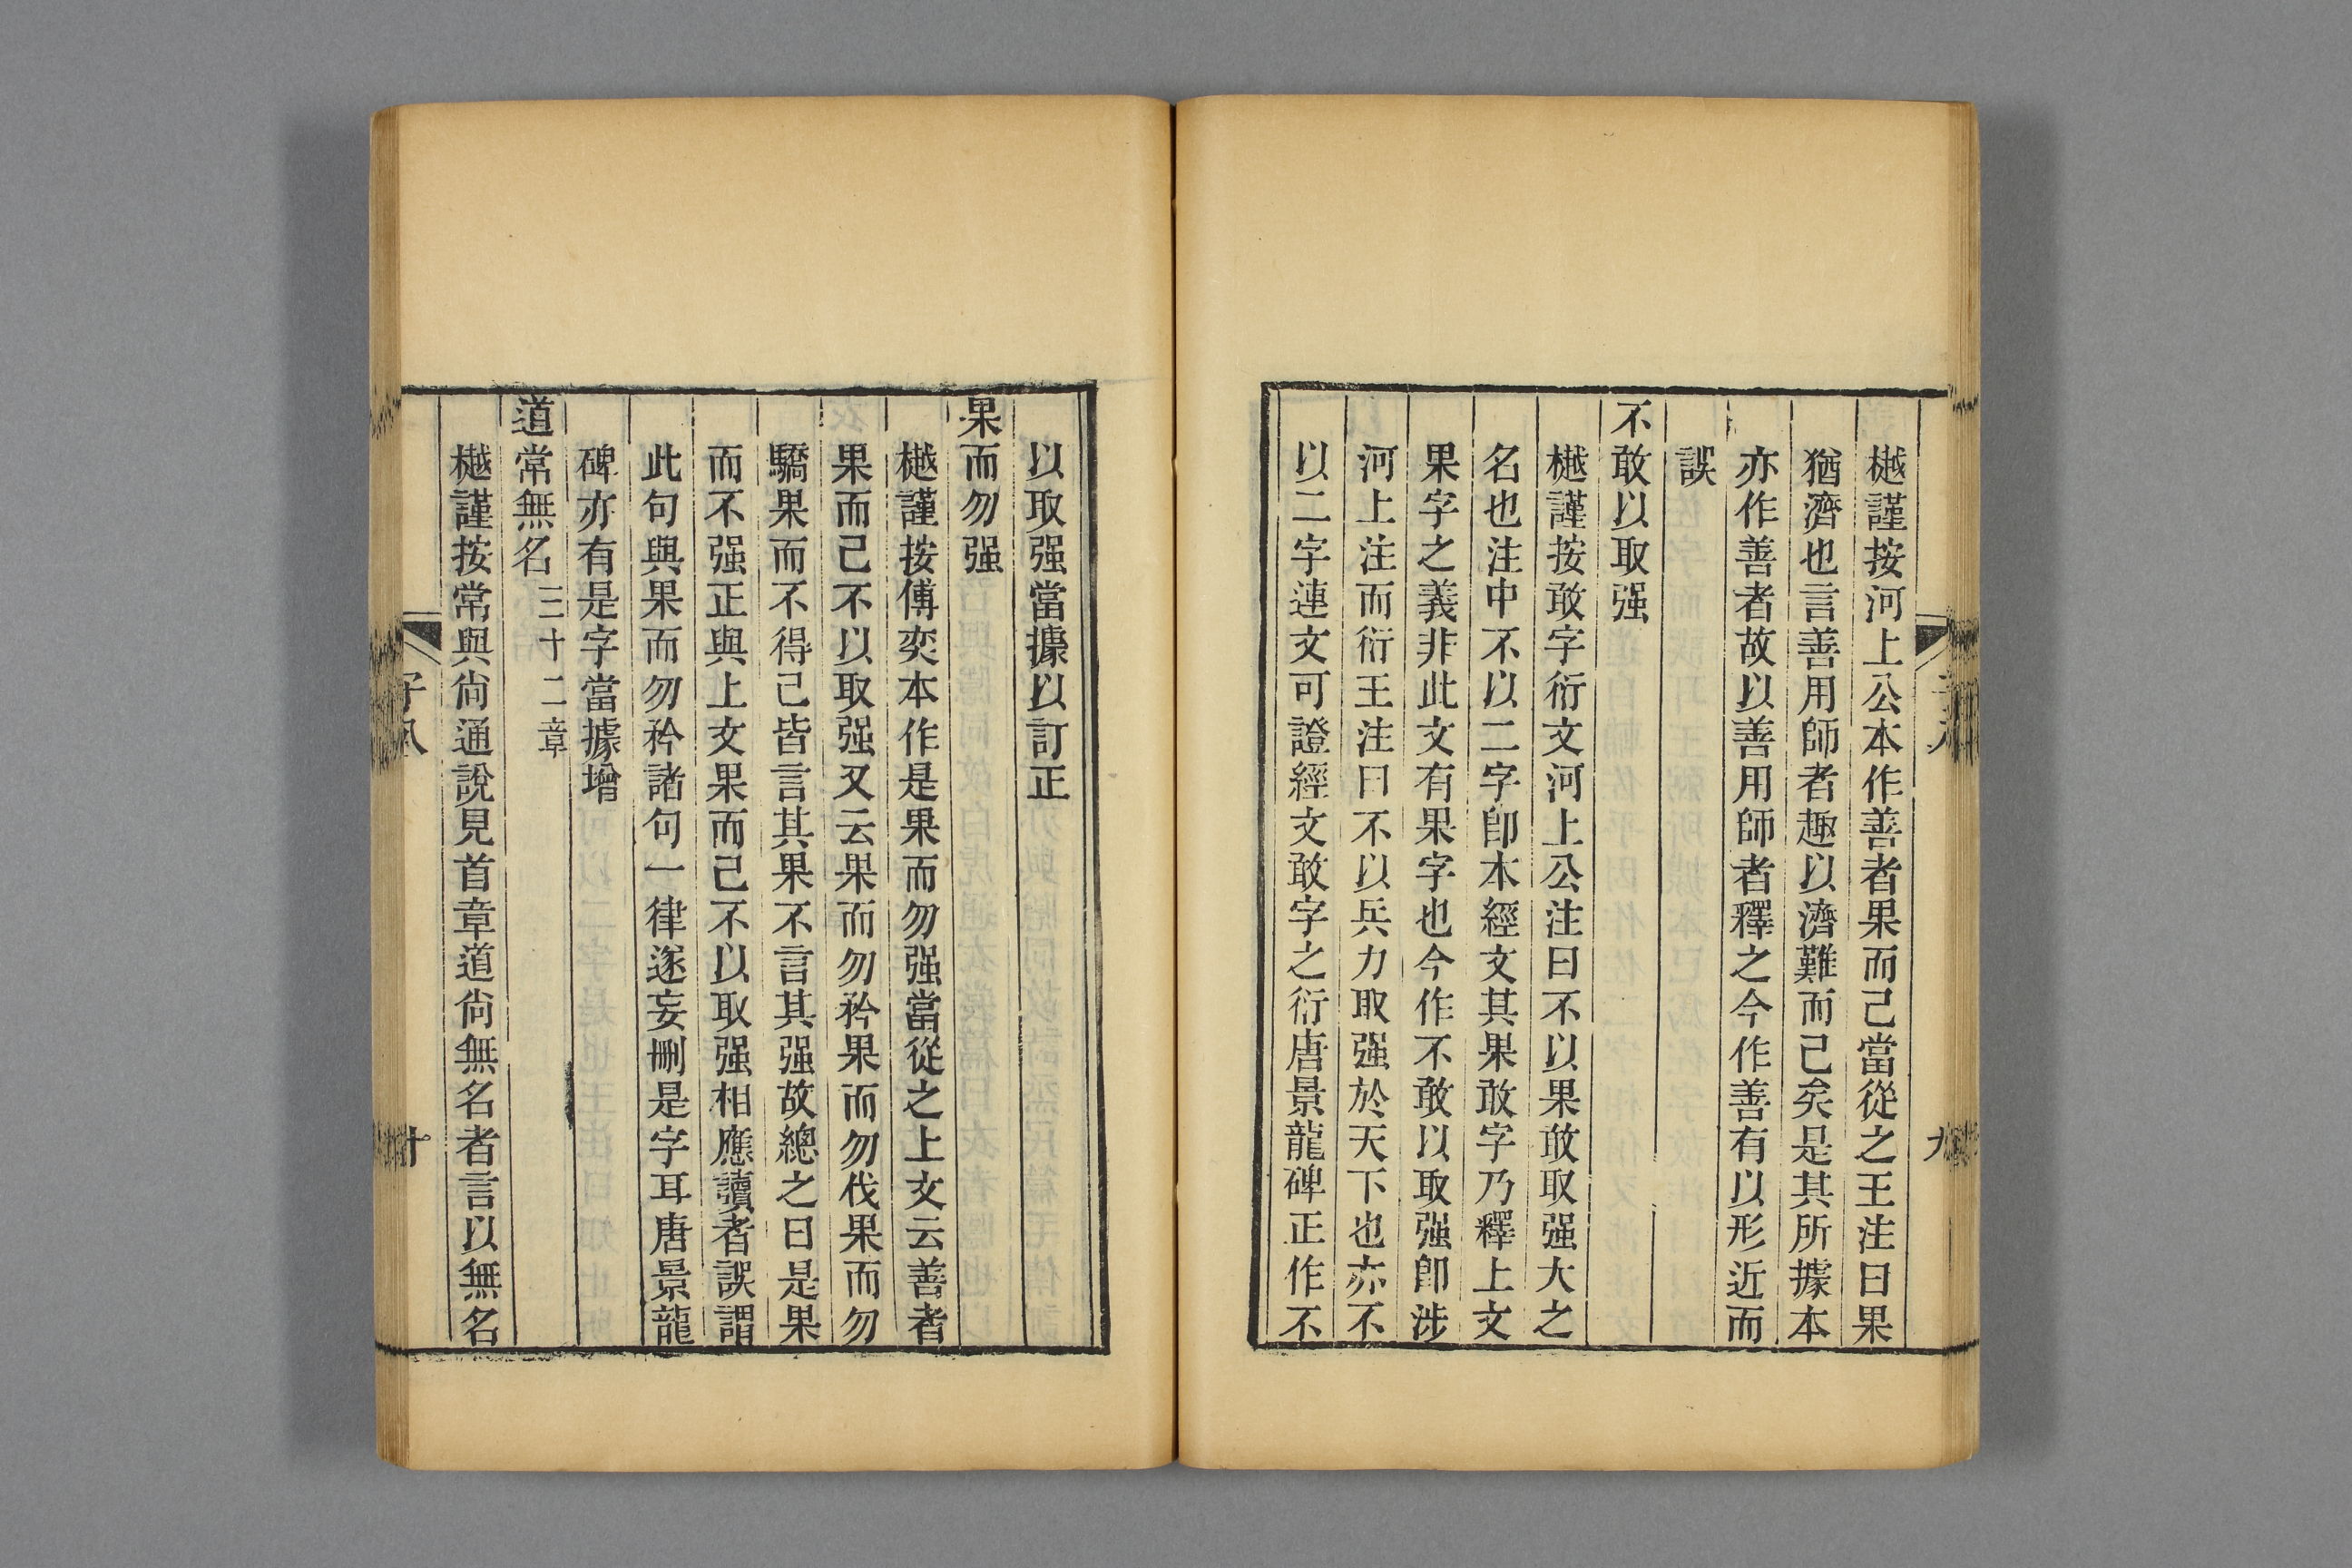 樾謹按河上公本作善者果而己當從之王注曰果
猶濟也言善用師者趣以濟難而己矣是其所據本
亦作善者故以善用師者釋之今作善有以形近而
誤
不敢以取强
樾謹按敢字衍文河上公注曰不以果敢取强大之
名也注中不以二字卽本經文其果敢字乃釋上文
果字之義非此文有果字也今作不敢以取强卽涉
河上注而衍王注曰不以兵力取强於天下也亦不
以二字連文可證經文敢字之衍唐景龍碑正作不
九
以取强當據以訂正
果而勿强
樾謹按傅奕本作是果而勿强當從之上文云善者
果而己不以取强又云果而勿矜果而勿伐果而勿
驕果而不得己皆言其果不言其强故總之曰是果
而不强正與上文果而己不以取强相應讀者誤謂
此句與果而勿矜諸句一律遂妄刪是字耳唐景龍
碑亦有是字當據增
道常無名三十二章
樾謹按常與尙通說見首章道尙無名者言以無名
十